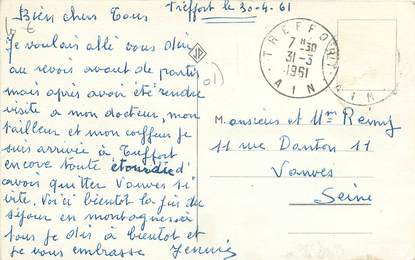 Treffort le 30-4.61
Bien chers Tous
Je voulais allé vous dir
au revoir avant de partir
mais après avoir été rendre
visite a mon docteur, mon
tailleur et mon coiffeur je
suis arrivée à Treffort
encore toute étourdie d'
avois quitter Vanves si
vite. Voici bientot la fin du
séjour en montagnes a
tous je dis à bientot et
je vous embrasse
TREFFORT
7 H30
31-3
1961
AIN
AIN
Monsieur et Mme Remy
11 rue Danton 11
Vanves
Seine